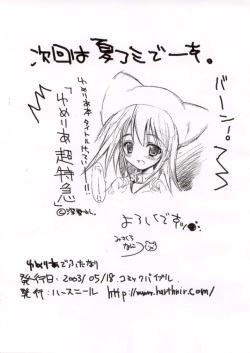 次回は夏コミでーす。
バーン!
ゆめりあ本
タイトルはてい
「ゆめりあ超特急」
よろしくですッ
みさくら
ゆめりあでふたなり
発行日:2003/05/18 コミックバイブル
発行:ハースニール http://www.harthnir.com/